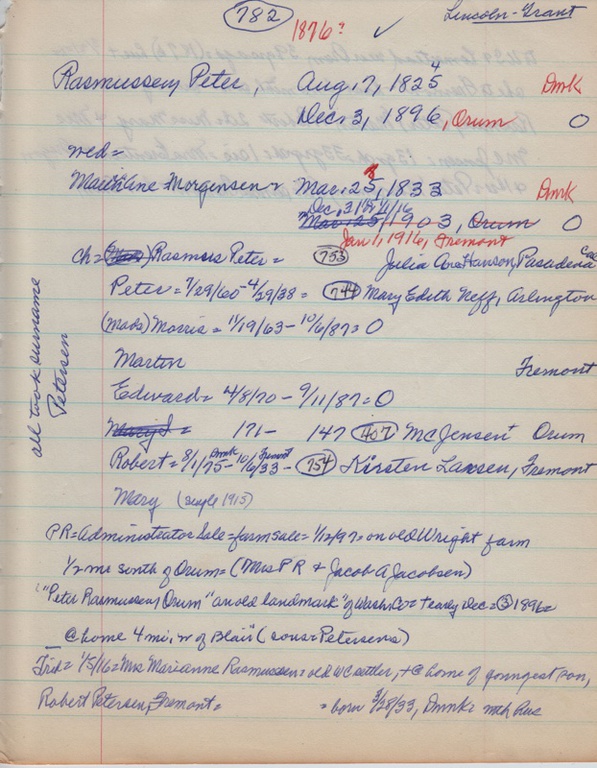 782 1876? ✓ Lincoln-Grant
Rasmussen, Peter, Aug. 7, 1825 4 Dmk
Dec. 3, 1896, Orum 0
wed=
Mathline Morgensen= Mar. 25, 8 1833 Dmk
Dec. 31 1916
Mar. 25/1903, Orum 0
Jan 1, 1916, Fremont
ch= Rasmus Peter= 753 Julia Hanson, Pasadena Cal
Peter= 7/29/60-4/29/38= 744 Mary Edith Neff, Arlington
(Mads) Morris= 11/19/63- 10/6/87=0
Martin Fremont
Edward= 4/8/70- 9/11/87=0
Mary S= 171- 147 407 McJensen Orum
Robert= 8/1/75 Dmk- 10/6/33 Fremont- 754 Kirsten Larsen, Fremont
Mary (single 1915)
all took surname
Petersen
PR=Administrator Sale=farm sale= 1/12/97=on old Wright farm
1/2 mi south of Orum= (Mrs PR + Jacob A Jacobsen)
"Peter Rasmussen, Orum" "an old landmark" of Wash.Co= + early Dec= 3 1896=
@ home 4 mi, w of Blair (sons=Petersens)
Trib= 1/5/16=Mrs Marianne Rasmussen= old WC settler, + @ home of youngest son,
Robert Petersen, Fremont= = born 3/28/33, Dmmk=